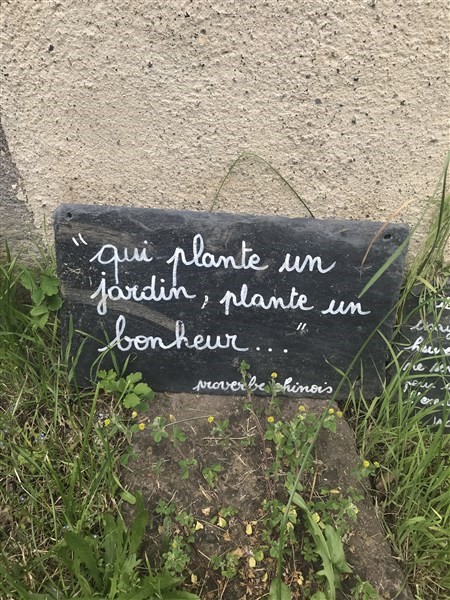 "qui plante un
jardin, plante un
bonheur..."
proverbe chinois